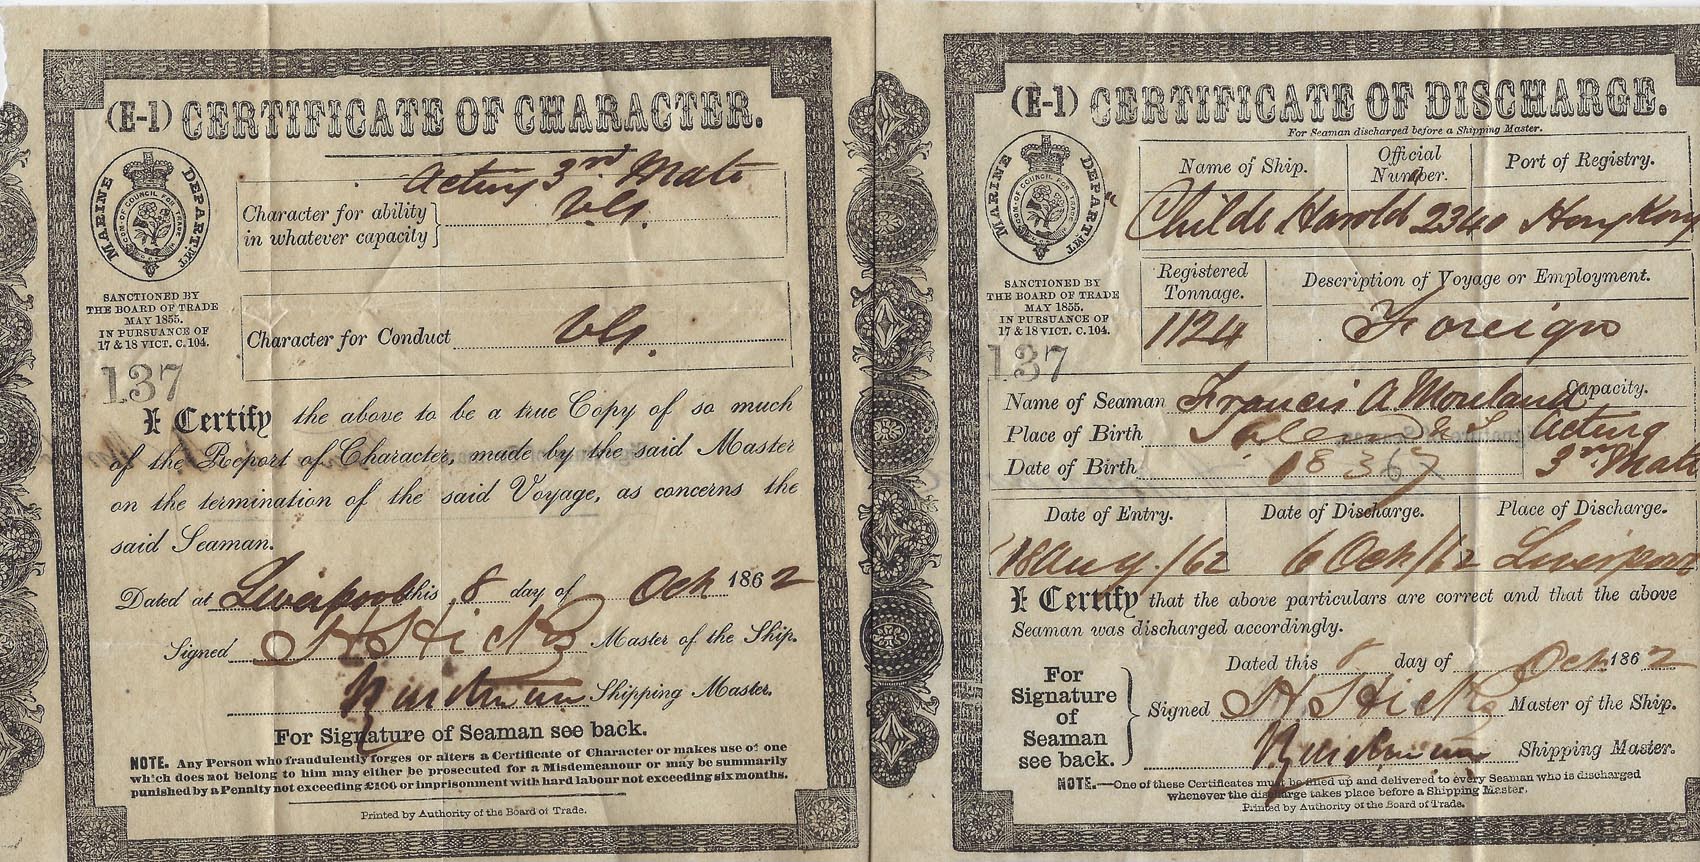 (E-1) CERTIFICATE OF CHARACTER.
Acting 3rd Mate
MARINE DEPARTMT
SEAL OF COUNCIL FOR TRADE
Character for ability
in whatever capacity
V.G.
SANCTIONED BY
THE BOARD OF TRADE
MAY 1855.
IN PURSUANCE OF
17 & 18 VICT. C. 104.
Character for Conduct V.G.
137
I Certify the above to be a true Copy of so much
of the Report of Character, made by the said Master
on the termination of the said Voyage, as concerns the
said Seaman.
Dated at Liverpool this 8 day of Oct 1862
Signed H Hicks Master of the Ship.
Shipping Master.
For Signature of Seaman see back.
NOTE. Any Person who fraudulently forges or alters a Certificate of Character or makes use of one
which does not belong to him may either be prosecuted for a Misdemeanour or may be summarily
punished by a Penalty not exceeding £100 or imprisonment with hard labour not exceeding six months.
Printed by Authority of the Board of Trade.
(E-1) CERTIFICATE OF DISCHARGE.
For Seaman discharged before a Shipping Master.
MARINE DEPARTMT
Name of Ship. Official Number. Port of Registry.
Childe Harold 2340 Hong Kong
SANCTIONED BY
THE BOARD OF TRADE
MAY 1855.
IN PURSUANCE OF
17 & 18 VICT. C. 104.
Registered Tonnage. Description of Voyage or Employment.
1124 Foreign
137
Name of Seaman Francis A Moreland Capacity.
Place of Birth Salem U S Acting
Date of Birth 1836 3rd Mate
Date of Entry. Date of Discharge. Place of Discharge.
18 Aug./62 6 Oct/62 Liverpool
I Certify that the above particulars are correct and that the above
Seaman was discharged accordingly.
Dated this 8 day of Oct 1862
For
Signature
of
Seaman
see back.
Signed H Hicks Master of the Ship.
Shipping Master.
NOTE.—One of these Certificates must be filled up and delivered to every Seaman who is discharged
whenever the discharge takes place before a Shipping Master.
Printed by Authority of the Board of Trade.